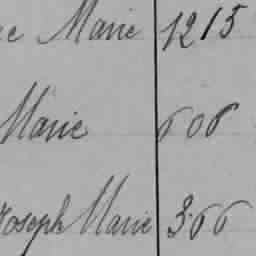 Marie 1215
Marie 606
Joseph Marie 366